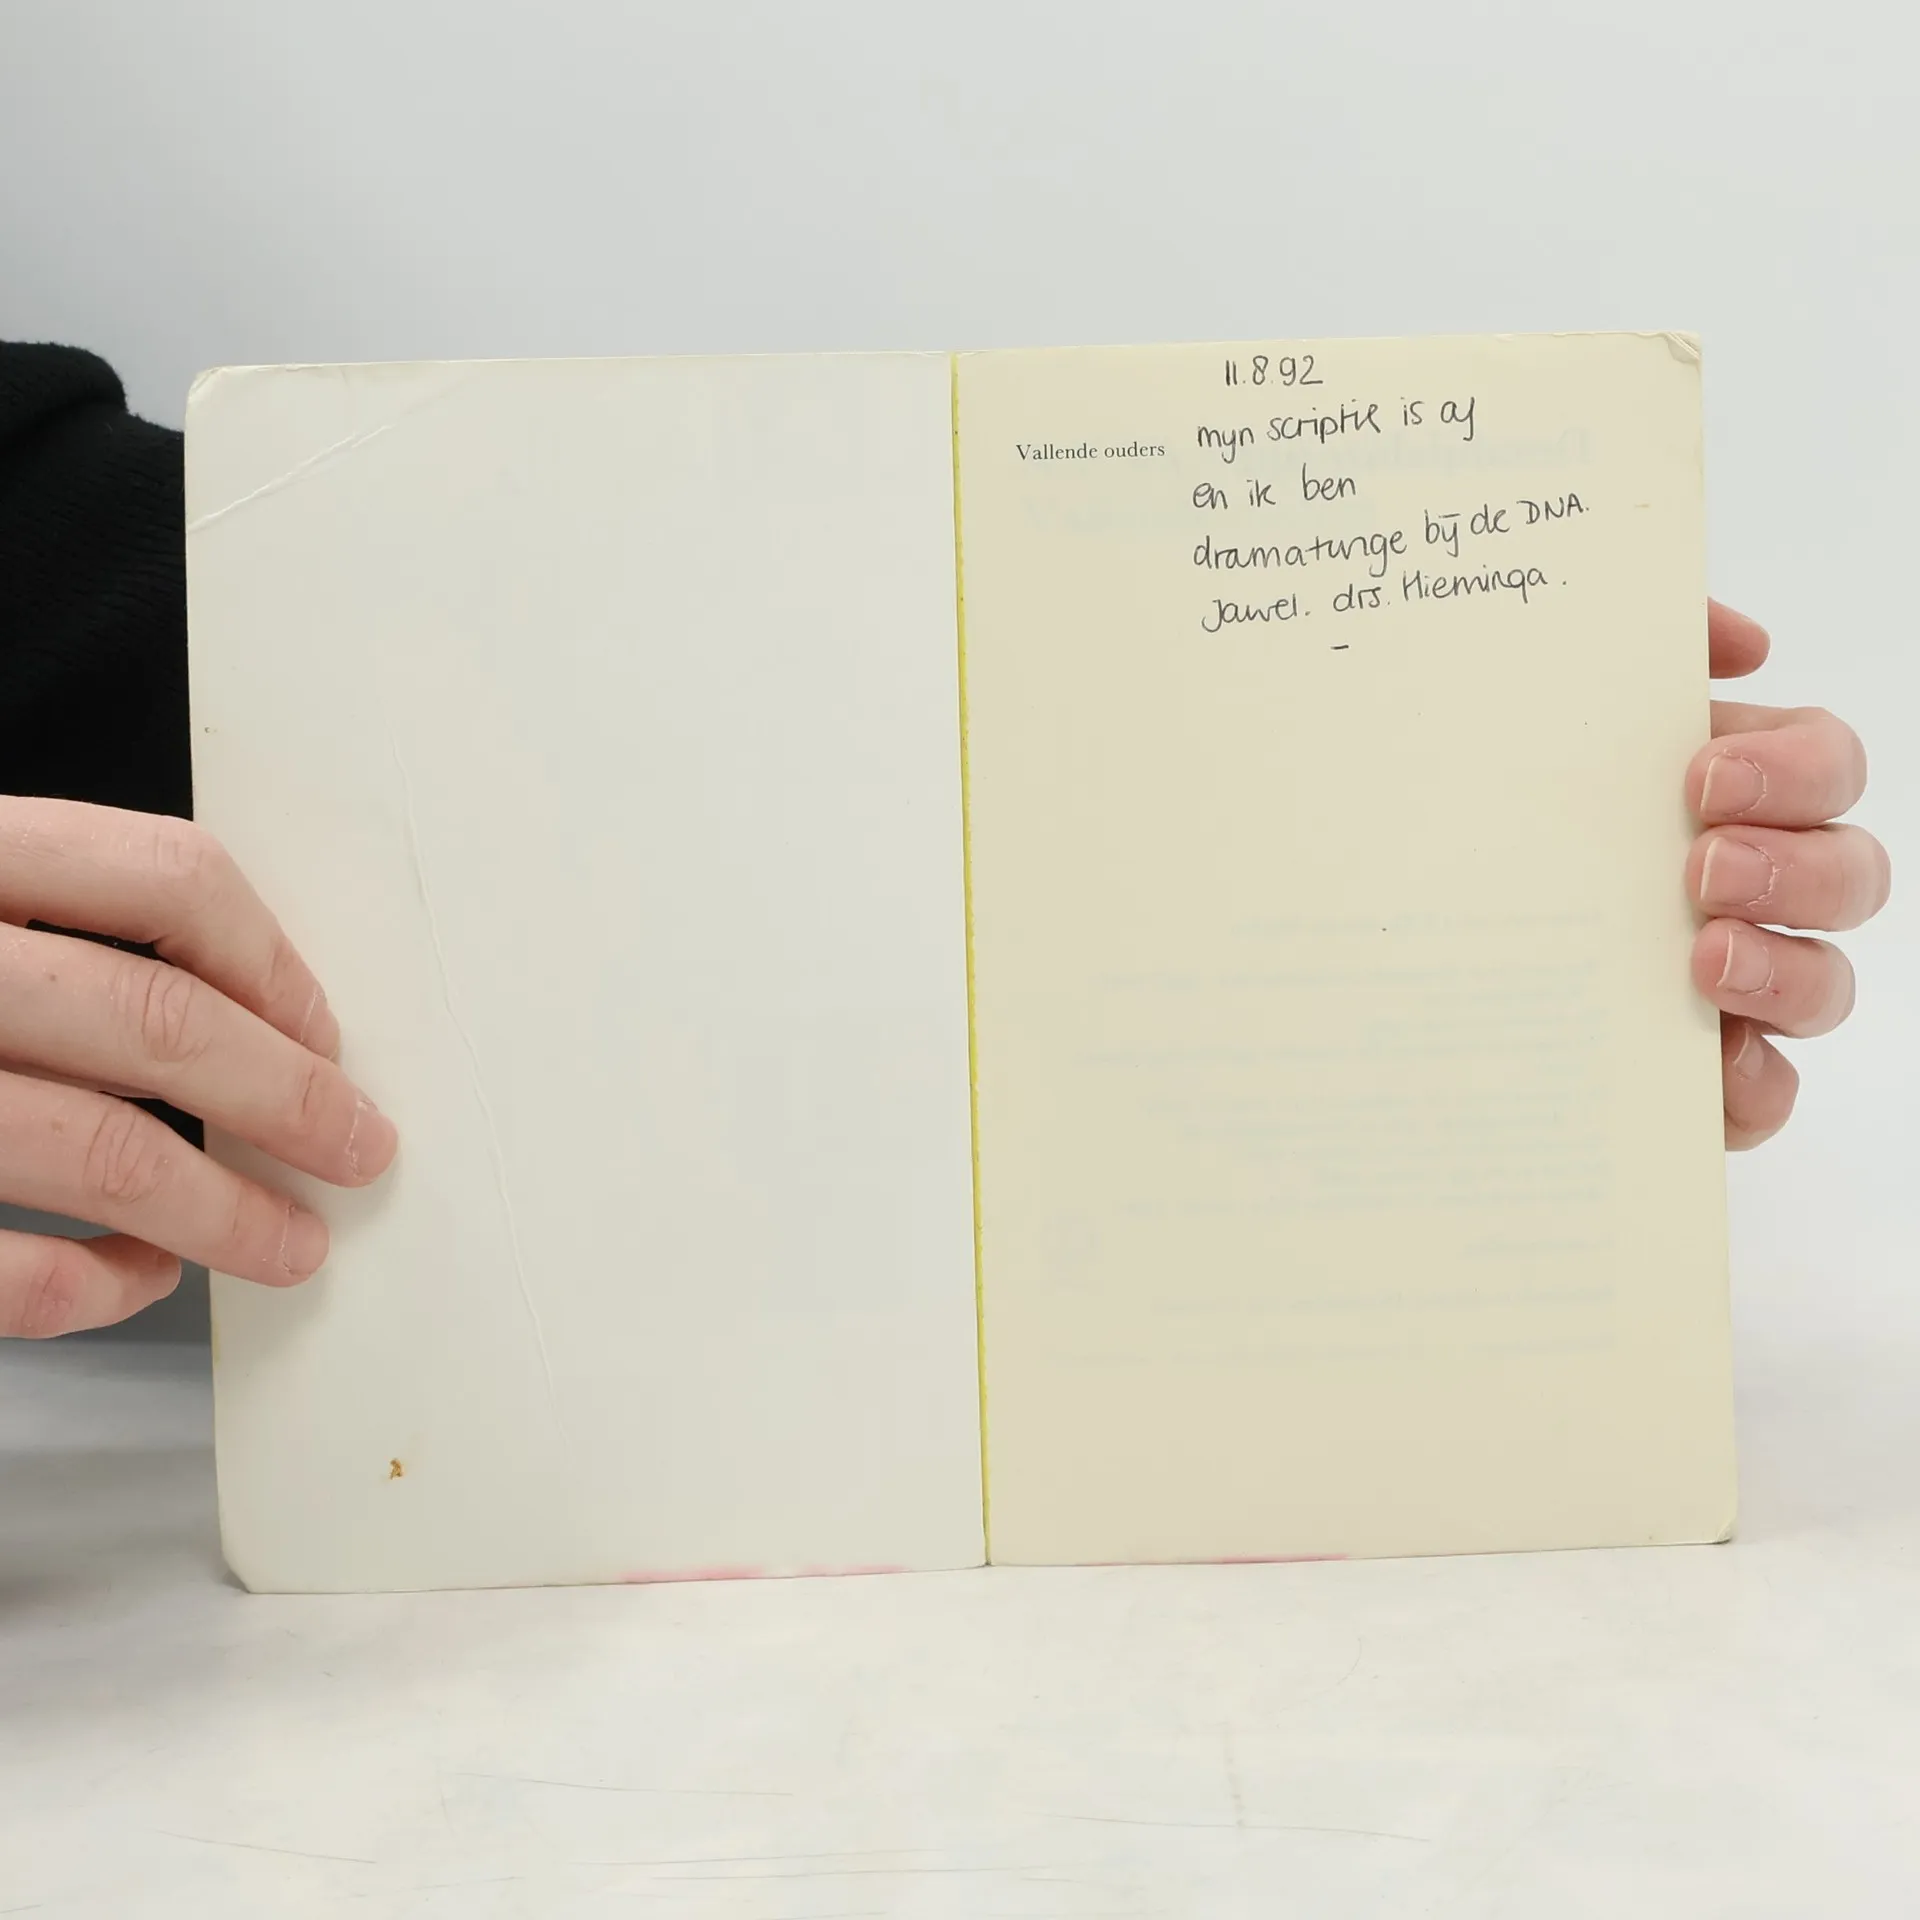 11.8.92
Vallende ouders
mijn scriptie is af
en ik ben
dramaturge bij de DNA.
Jawel. drs. Hieminga.
–